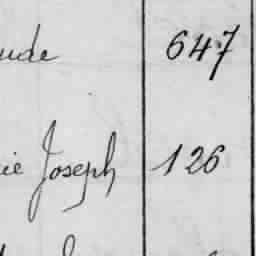 ude 647
ie Joseph 126